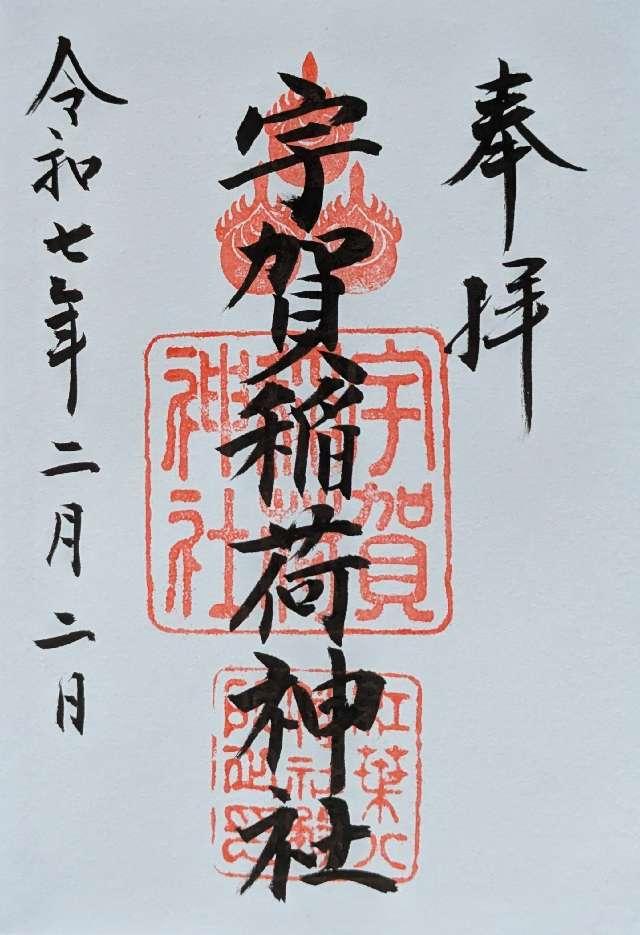 奉拝
宇賀稲荷神社
令和七年二月二日
宇賀
稲荷
神社